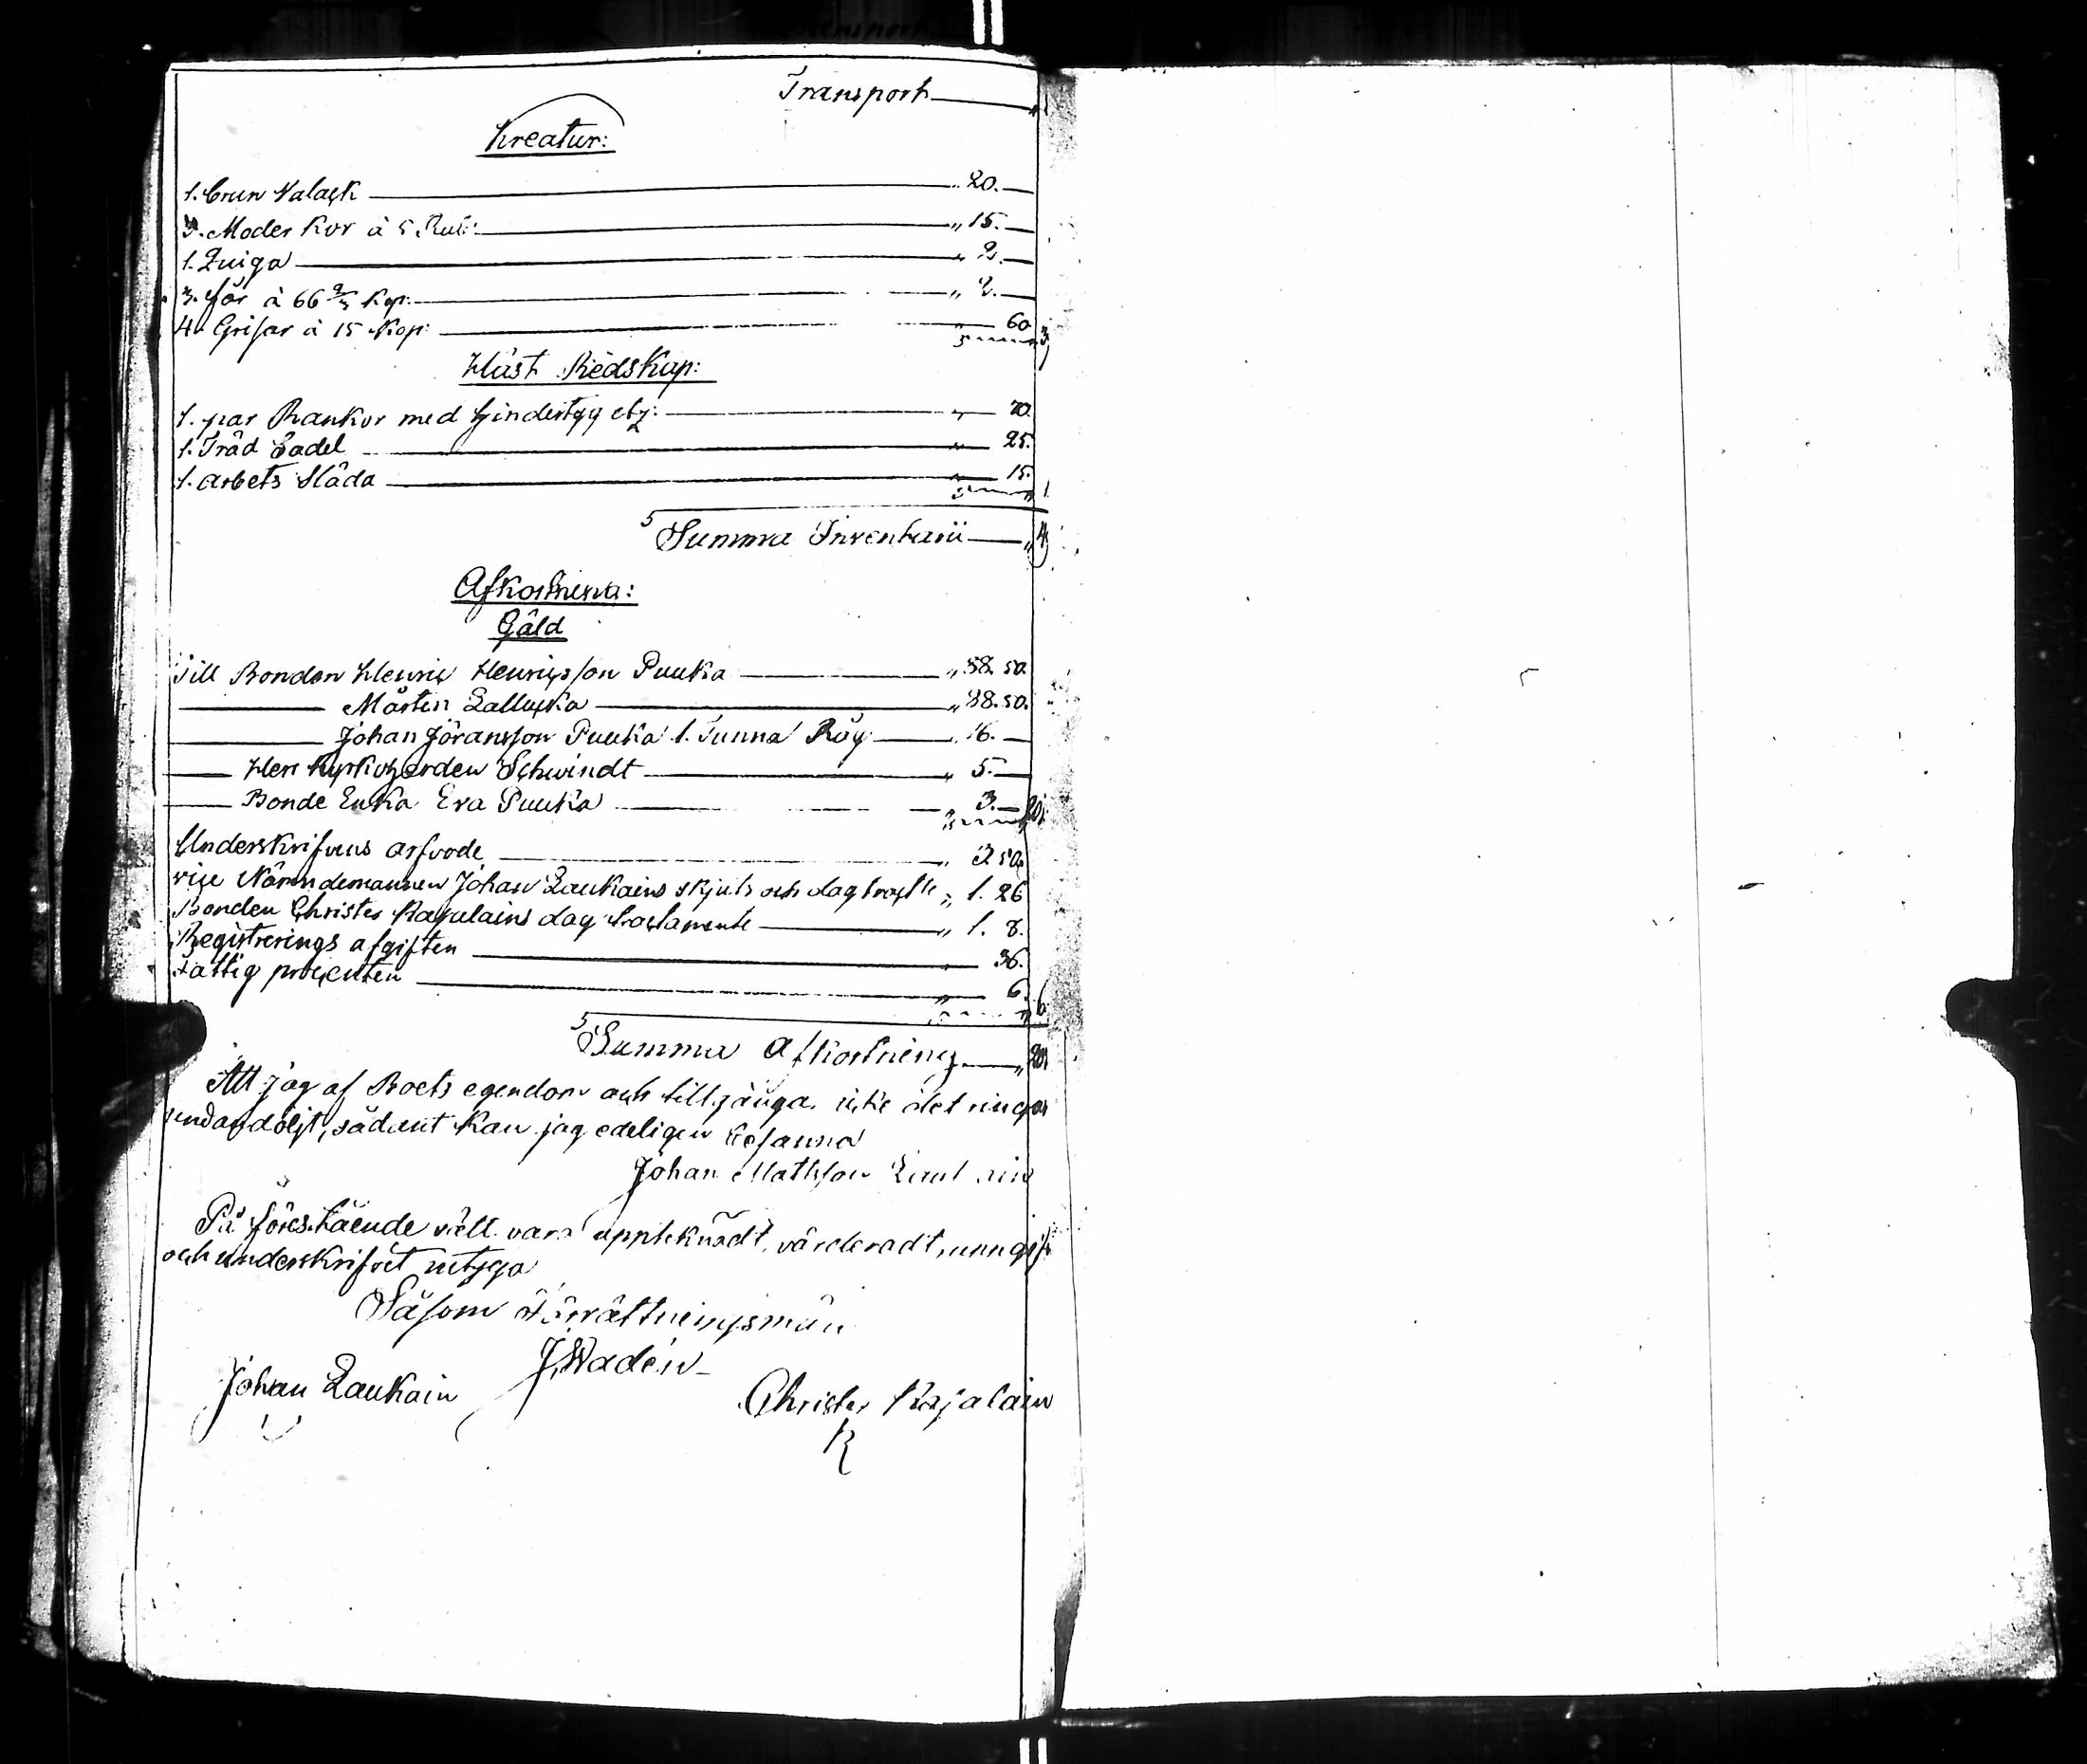 Transport
Kreatur:
1. brun Valack " 20. —
3. Moder Kor à 5 Rub: " 15. —
1. Quiga " 2. —
3. får à 66 2/3 Kop: " 2. —
4. Grisar à 15 Kop: " — 60
Häst Redskap:
1. par Rankor med " — 70.
1. Träd Sadel " — 25.
1. arbets Släda " — 15.
Summa Inventarii
Afkortning:
Gäld
Till Bonden Henric Henricsson Puuka " 58. 50.
Mårten Lallucka " 38. 50.
Johan Jöransson Puuka 1. Tunna Råg " 6. —
Herr Kyrkoherden Schvindt " 5. —
Bonde Enka Eva Puuka " 3. —
Underskrifvens arfvode " 3 50
vice Nämndemannen Johan Laukains skjuts och dagtracte " 1. 26
Bonden Christer Kajalains dag tractamente " 1. 8.
Registrerings afgiften " — 36.
Fattig procenten " — 6
Summa Afkortning
Att jag af Boets egendom och tillgånga icke det ringas
undandöljt, sådant kan jag edeligen besanna
Johan Mathsson
På förestående sätt vara uppteknadt, värderadt,
och underskrifvet betyga
Såsom Förrättningsmän
J. Wadén
Johan Laukain
Christer Kajalain
K